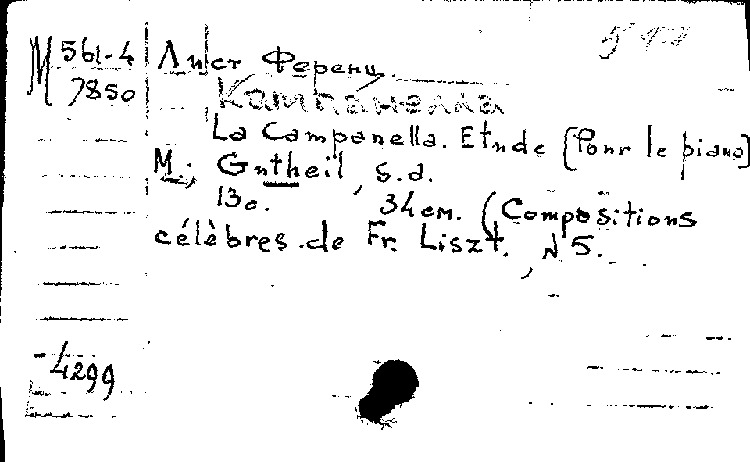 М 561-4
7850
Лист Ференц.
Кампанелла
La Campanella. Etude [Pour le piano]
М., Gutheil, s.d.
13с. 34см. (Compositions
célèbres de Fr. Liszt. N 5.
-4299